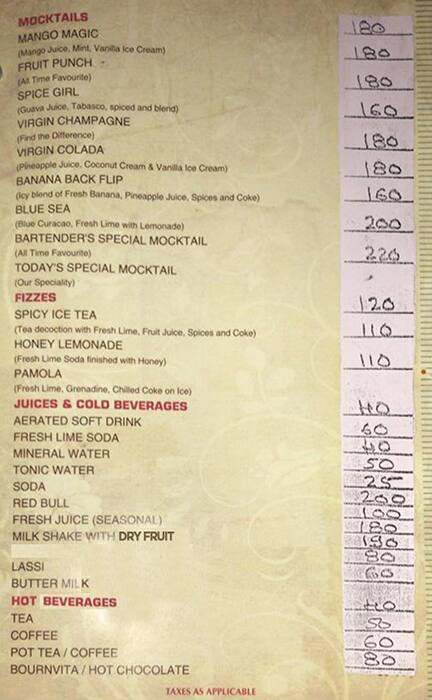 MOCKTAILS
MANGO MAGIC 180
(Mango Juice, Mint, Vanilla Ice Cream)
FRUIT PUNCH 180
(All Time Favourite)
SPICE GIRL 180
(Guava Juice, Tabasco, spiced and blend)
VIRGIN CHAMPAGNE 160
(Find the Difference)
VIRGIN COLADA 180
(Pineapple Juice, Coconut Cream & Vanilla Ice Cream)
BANANA BACK FLIP 180
(Icy blend of Fresh Banana, Pineapple Juice, Spices and Coke)
BLUE SEA 160
(Blue Curacao, Fresh Lime with Lemonade)
BARTENDER'S SPECIAL MOCKTAIL 200
(All Time Favourite)
TODAY'S SPECIAL MOCKTAIL 220
(Our Speciality)
FIZZES
SPICY ICE TEA 120
(Tea decoction with Fresh Lime, Fruit Juice, Spices and Coke)
HONEY LEMONADE 110
(Fresh Lime Soda finished with Honey)
PAMOLA 110
(Fresh Lime, Grenadine, Chilled Coke on Ice)
JUICES & COLD BEVERAGES
AERATED SOFT DRINK 40
FRESH LIME SODA 60
MINERAL WATER 40
TONIC WATER 50
SODA 25
RED BULL 200
FRESH JUICE (SEASONAL) 100
MILK SHAKE WITH DRY FRUIT 180
190
LASSI 80
BUTTER MILK 60
HOT BEVERAGES
TEA 40
COFFEE 50
POT TEA / COFFEE 60
BOURNVITA / HOT CHOCOLATE 80
TAXES AS APPLICABLE